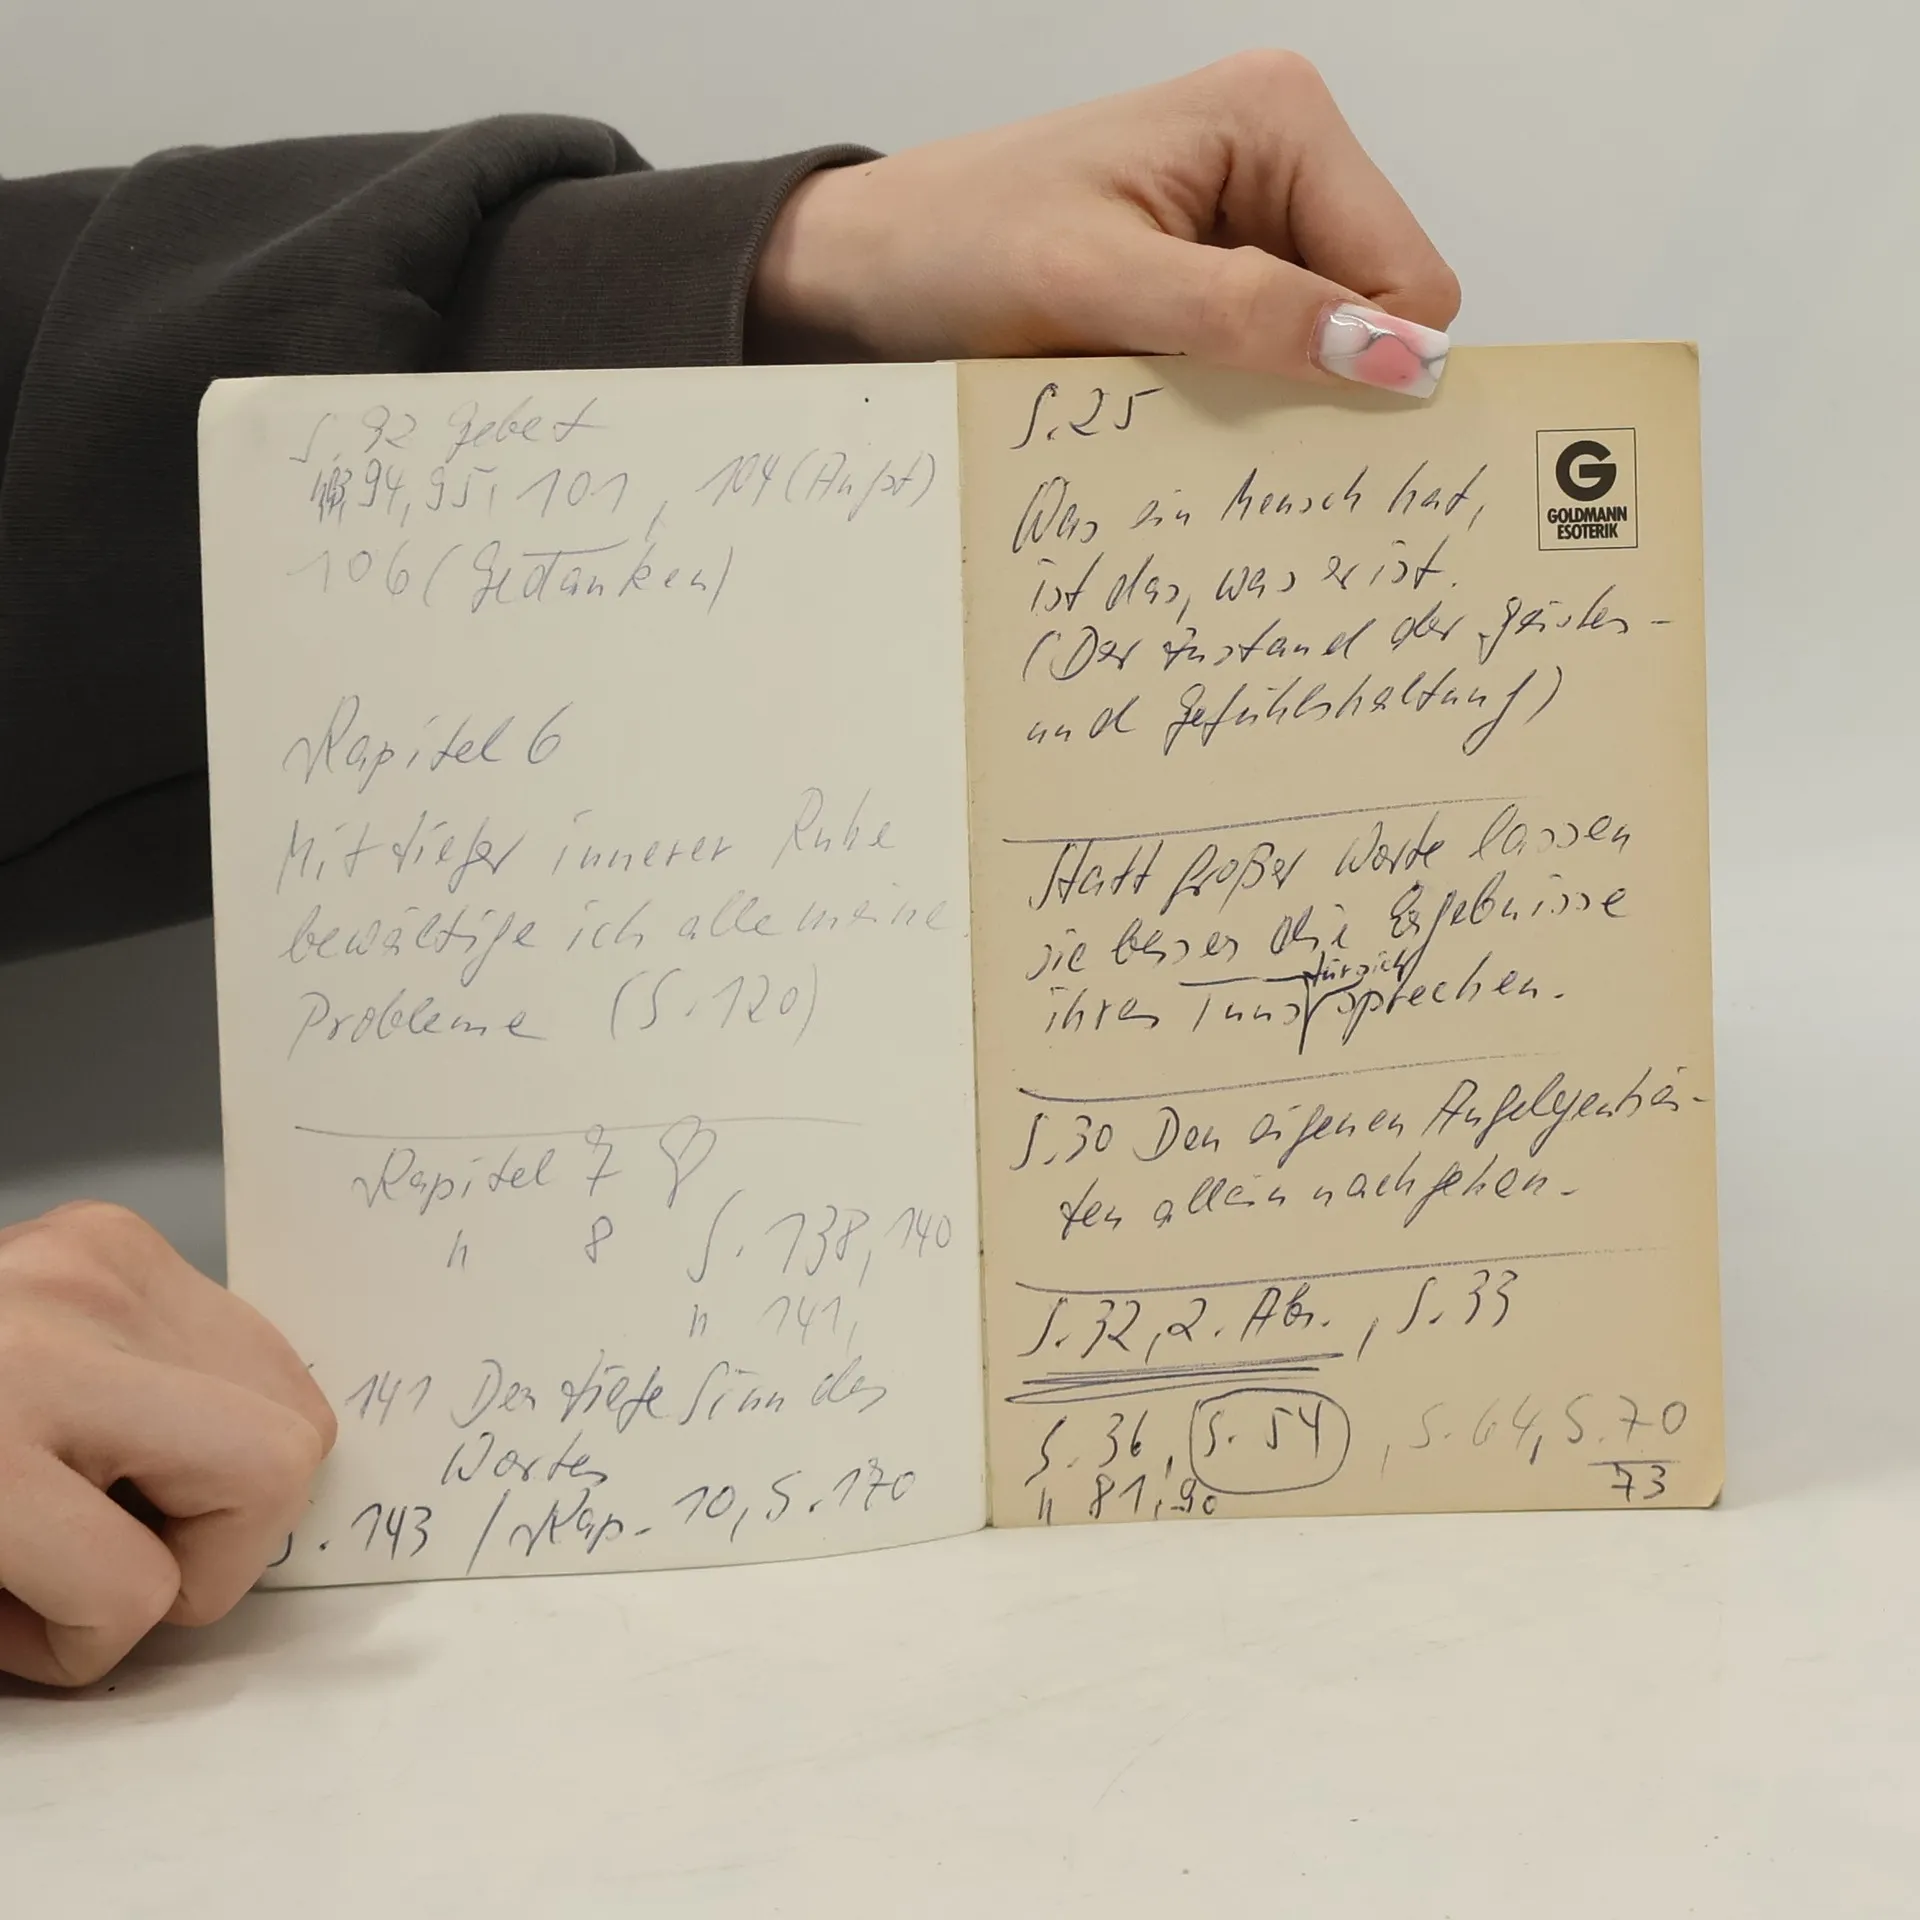 S. 92 Gebet
94, 95, 101, 104 (Angst)
106 (Gedanken)
Kapitel 6
Mit tiefer innerer Ruhe
bewältige ich alle meine
Probleme (S. 120)
Kapitel 7
" 8 S. 138, 140
" 141,
141 Der tiefe Sinn des
Wortes
S. 143 / Kap. 10, S. 170
S. 25
Was ein Mensch hat,
ist das, was er ist.
(Der Zustand der Geistes-
und Gefühlshaltung)
GOLDMANN
ESOTERIK
Statt großer Worte lassen
sie besser die Ergebnisse
für sich
ihres Tuns sprechen.
S. 30 Den eigenen Angelegenhei-
ten allein nachgehen.
S. 32, 2. Abs., S. 33
S. 36, S. 54, S. 64, S. 70
" 81, 90 73